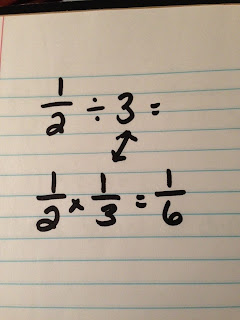 1/2 ÷ 3 =
1/2 × 1/3 = 1/6